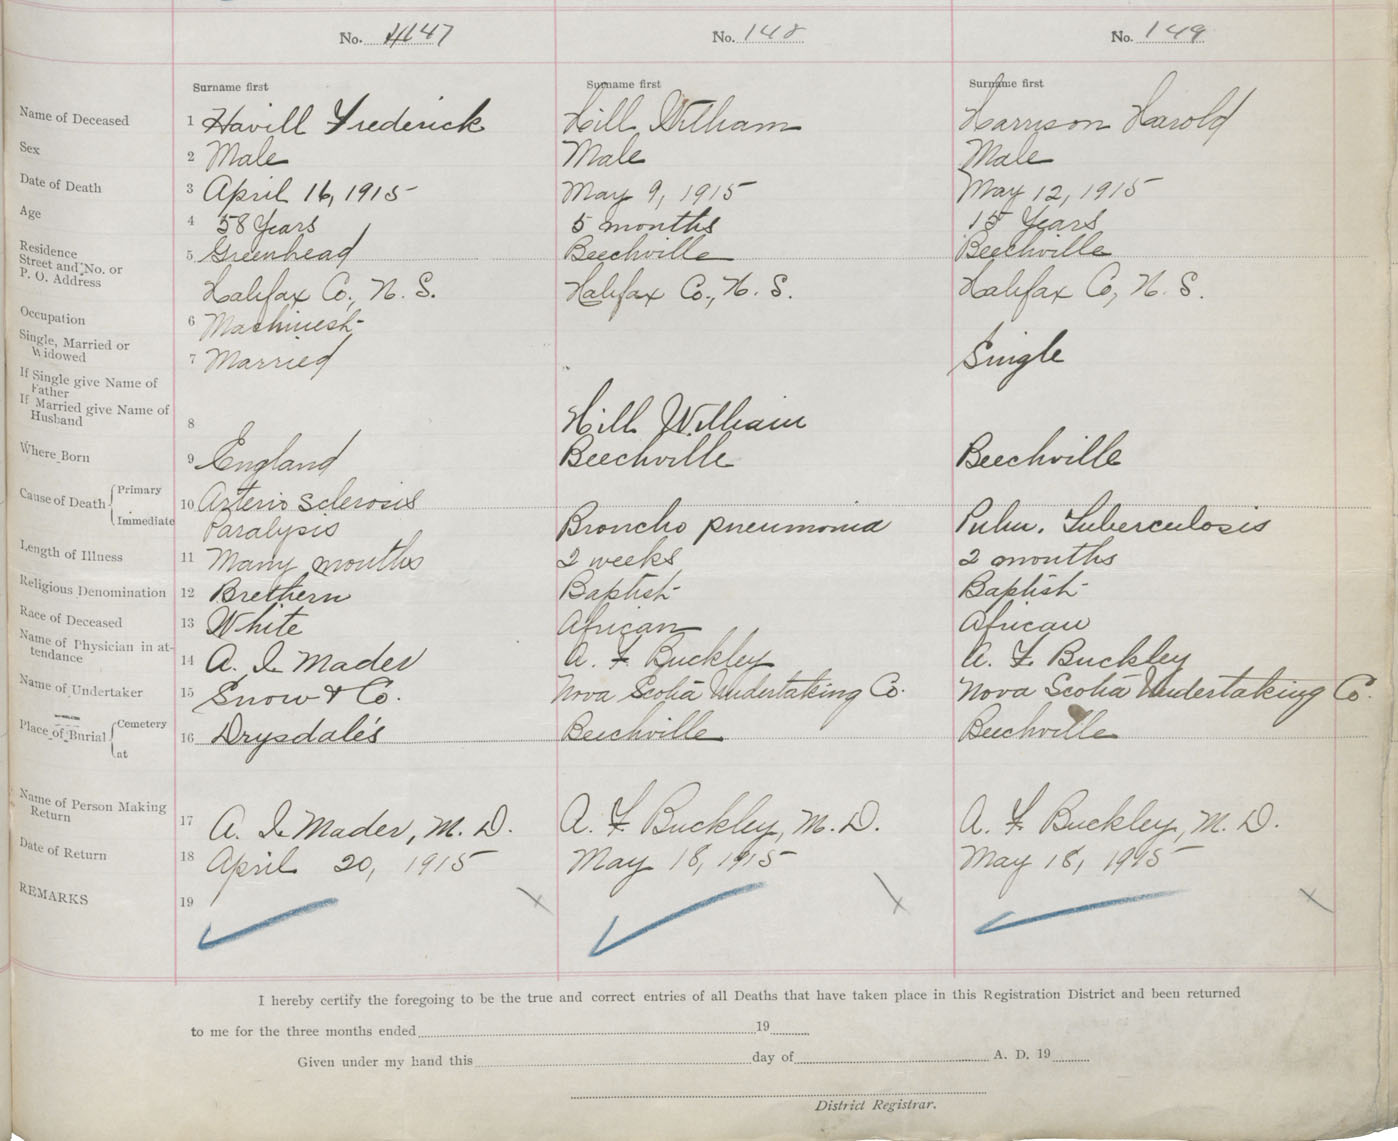 No. 147 No. 148 No. 149
Surname first Surname first Surname first
Name of Deceased 1 Havill Frederick Hill William Harrison Harold
Sex 2 Male Male Male
Date of Death 3 April 16, 1915 May 9, 1915 May 12, 1915
Age 4 58 Years 5 months 15 Years
Residence Street and No. or P. O. Address 5 Greenhead Beechville Beechville
Halifax Co., N. S. Halifax Co., N. S. Halifax Co, N. S.
Occupation 6 Machinest
Single, Married or Widowed 7 Married Single
If Single give Name of Father
If Married give Name of Husband 8 Hill William
Where Born 9 England Beechville Beechville
Cause of Death Primary 10 Arterio sclerosis
Immediate Paralysis Broncho pneumonia Pulm. Tuberculosis
Length of Illness 11 Many months 2 weeks 2 months
Religious Denomination 12 Brethern Baptist Baptist
Race of Deceased 13 White African African
Name of Physician in attendance 14 A. I. Mader A. F. Buckley A. F. Buckley
Name of Undertaker 15 Snow & Co. Nova Scotia Undertaking Co. Nova Scotia Undertaking Co.
Place of Burial Cemetery at 16 Drysdale's Beechville Beechville
Name of Person Making Return 17 A. I. Mader, M. D. A. F. Buckley, M. D. A. F. Buckley, M. D.
Date of Return 18 April 20, 1915 May 18, 1915 May 18, 1915
REMARKS 19
I hereby certify the foregoing to be the true and correct entries of all Deaths that have taken place in this Registration District and been returned
to me for the three months ended 19
Given under my hand this day of A. D. 19
District Registrar.